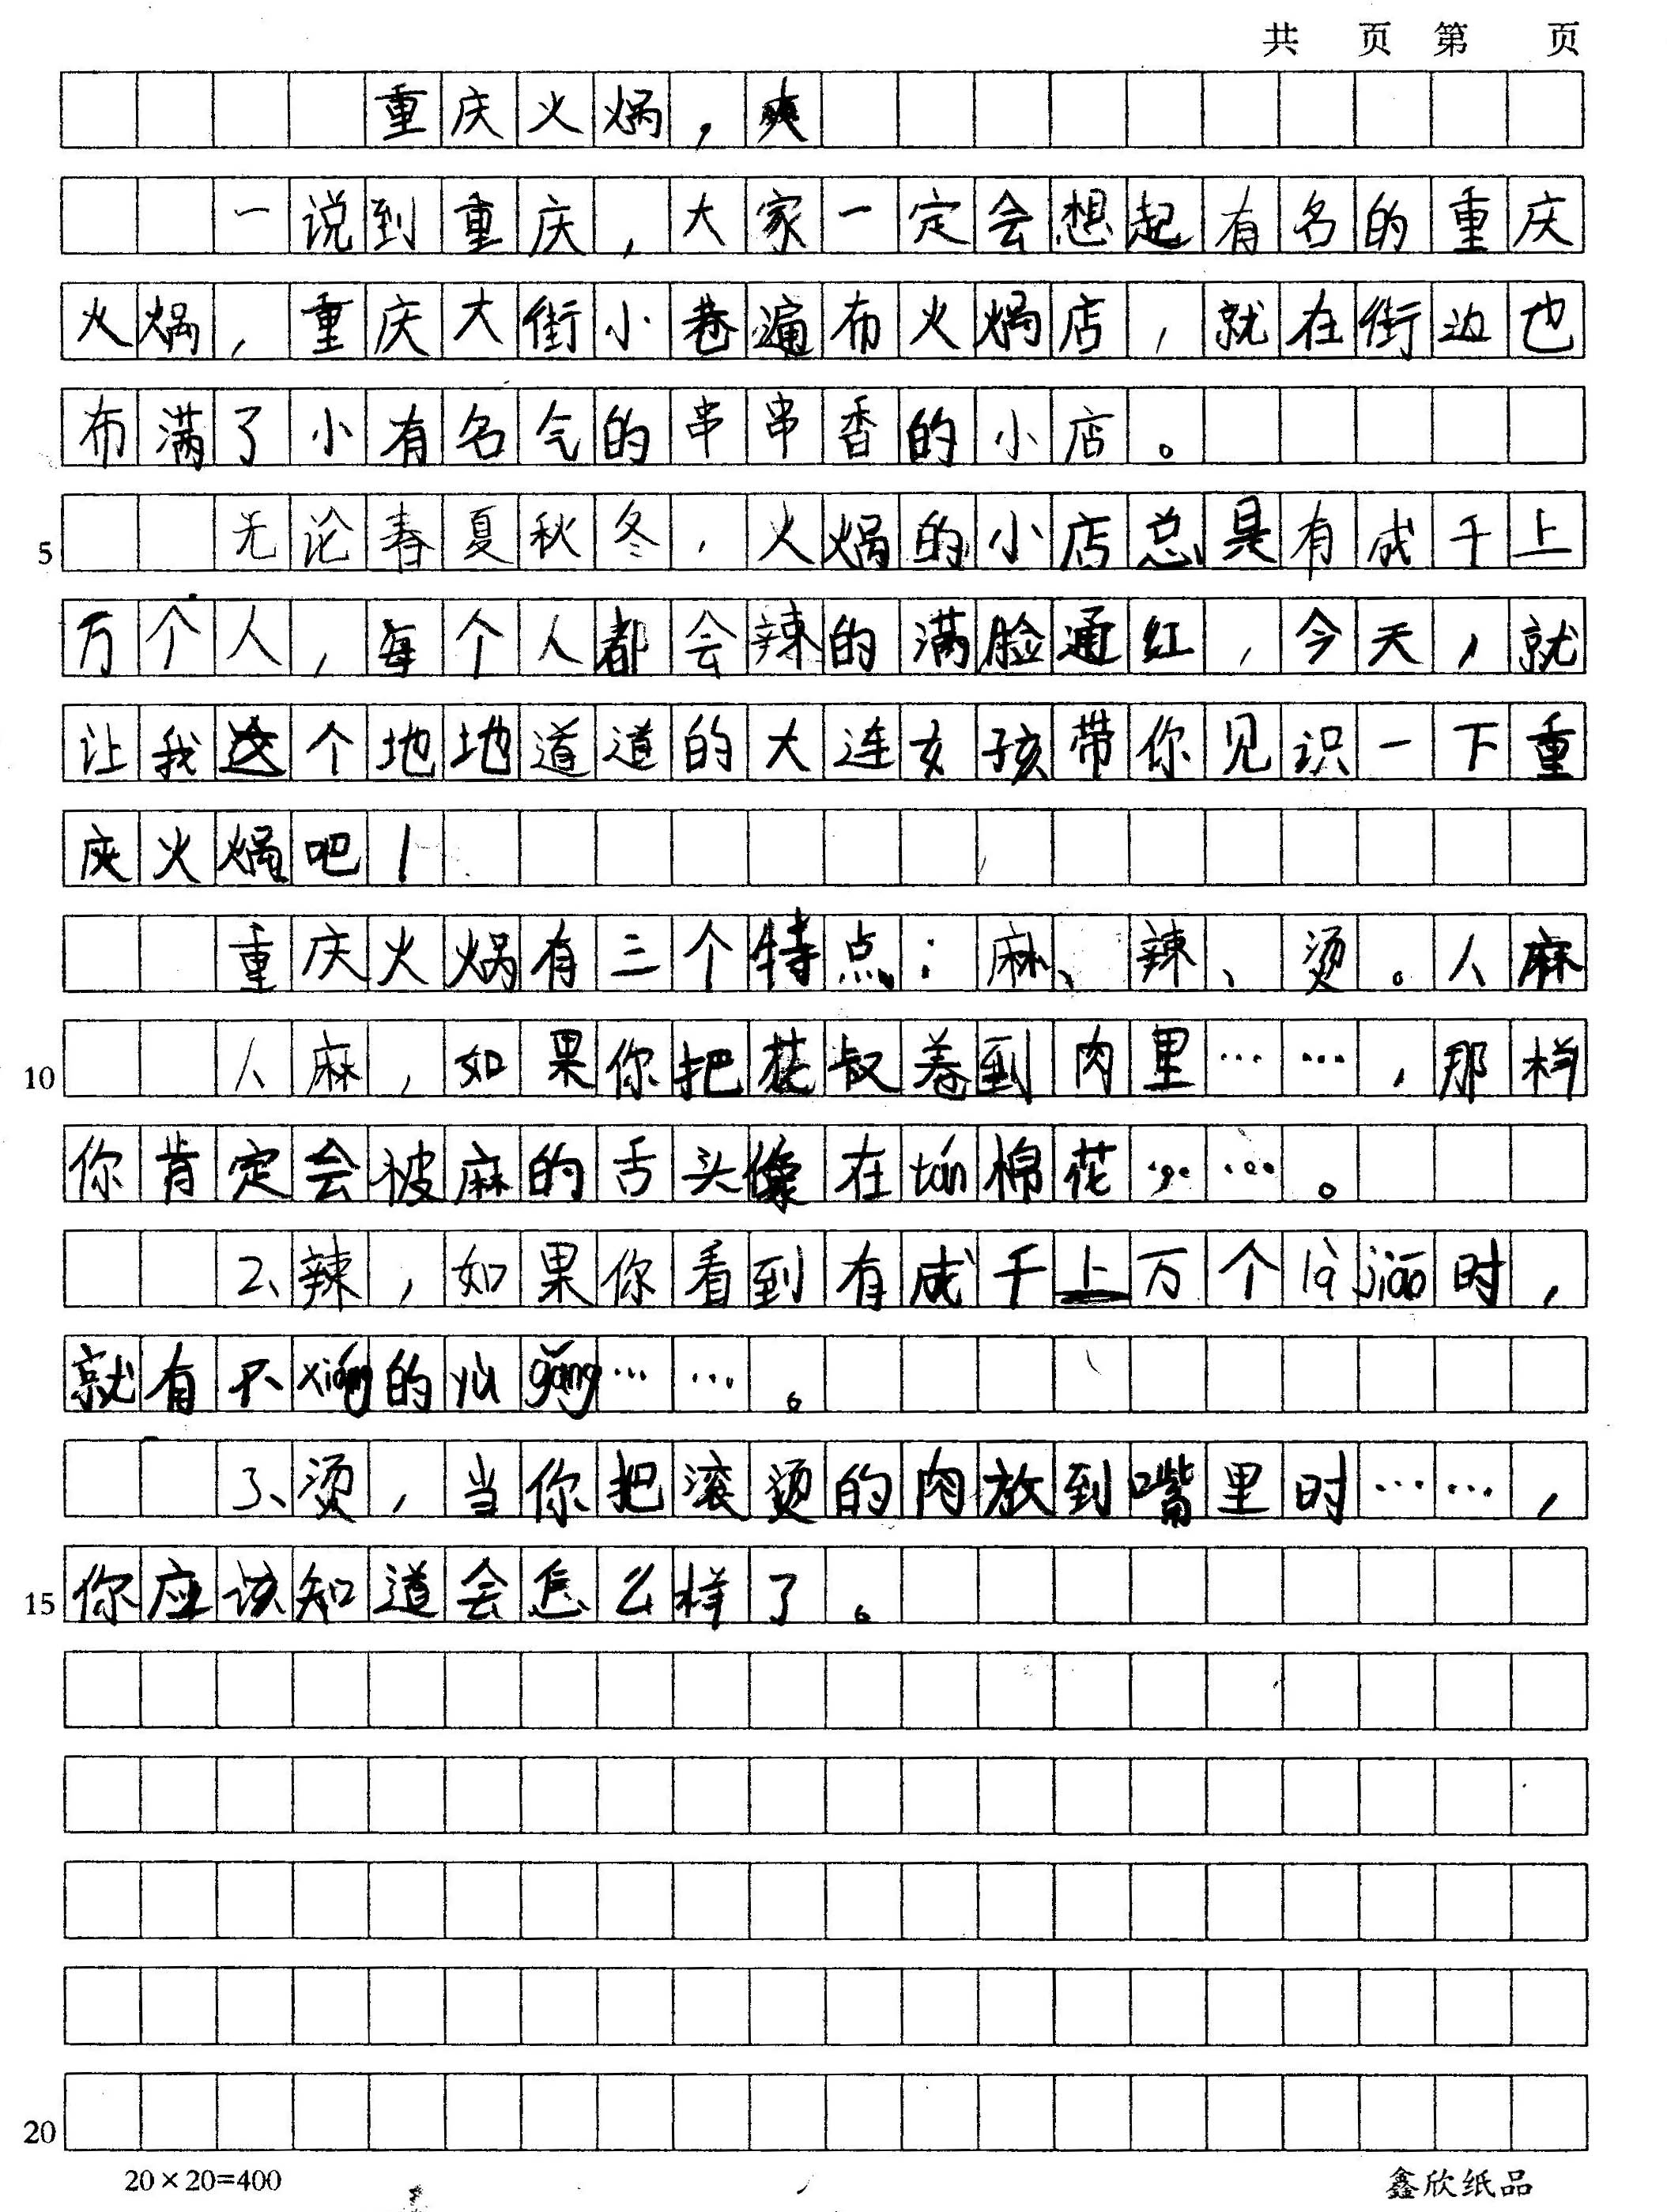 共 页 第 页
重庆火锅，爽
一说到重庆，大家一定会想起有名的重庆
火锅，重庆大街小巷遍布火锅店，就在街边也
布满了小有名气的串串香的小店。
5 无论春夏秋冬，火锅的小店总是有成千上
万个人，每个人都会辣的满脸通红，今天，就
让我这个地地道道的大连女孩带你见识一下重
庆火锅吧！
重庆火锅有三个特点：麻、辣、烫。人麻
10 人麻，如果你把花叔卷到肉里……，那样
你肯定会被麻的舌头像在tán棉花……。
2、辣，如果你看到有成千上万个là jiāo时，
就有不xiáng的yù gǎng……。
3、烫，当你把滚烫的肉放到嘴里时……，
15 你应该知道会怎么样了。
20
20×20=400 鑫欣纸品